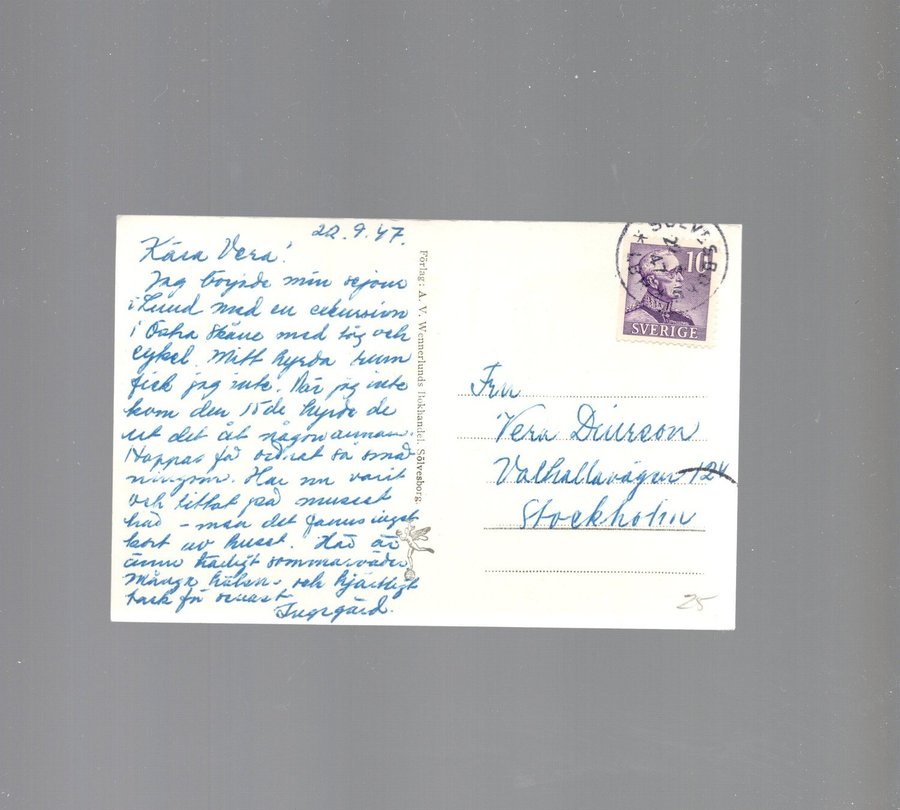 22.9.47.
Kära Vera!
Jag började min sejour
i Lund med en exkursion
i Östra Skåne med tåg och
cykel. Mitt hyrda rum
fick jag inte. När jag inte
kom den 15de hyrde de
ut det åt någon annan.
Hoppas få ordnat så små
ningom. Har nu varit
och tittat på museet
här – men det fanns inget
kort av huset. Här är
ännu härligt sommarväder
Många häls. och hjärtligt
tack för senast
Ingegärd.
Förlag: A. V. Wennerlunds Bokhandel, Sölvesborg.
SÖLVESB
47
10
SVERIGE
Fru
Vera
Valhallavägen 124
Stockholm
25